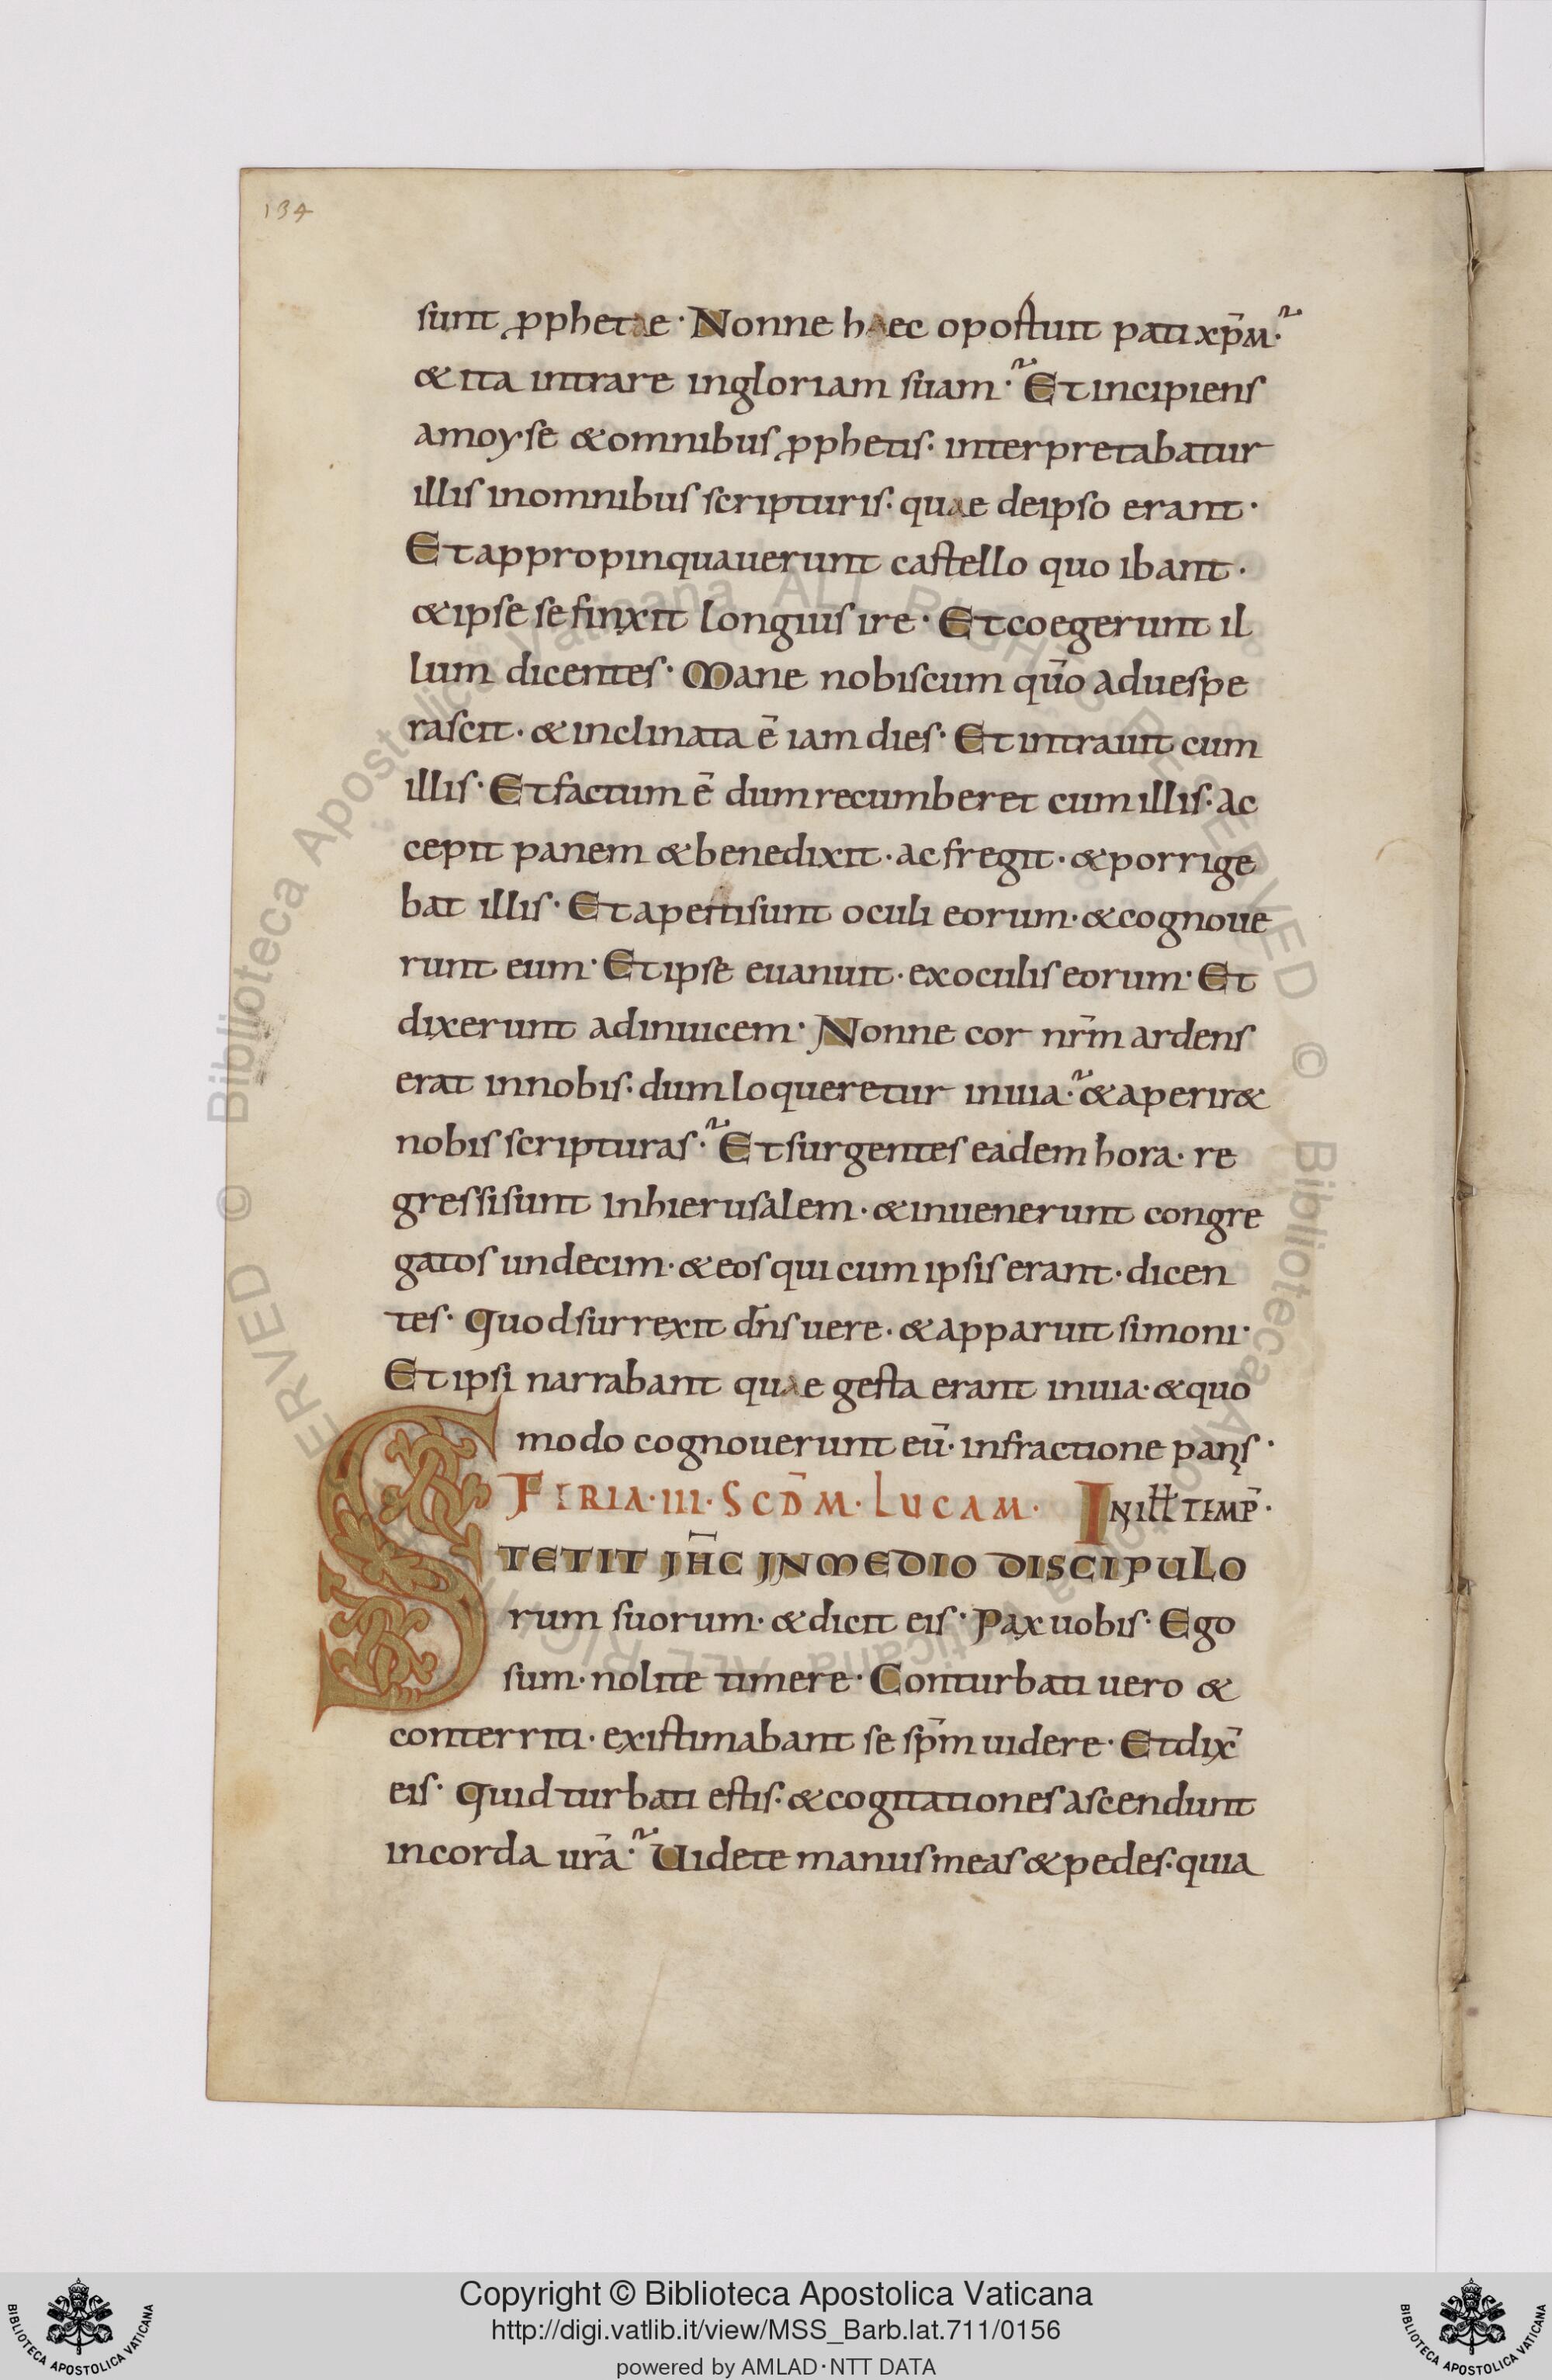 134
sunt ꝓphetae· Nonne haec oportuit pati xp̄m·
& ita intrare ingloriam suam· Et incipiens
amoyse & omnibus ꝓphetis· interpretabatur
illis inomnibus scripturis· quae deipso erant·
Et appropinquauerunt castello quo ibant·
& ipse se finxit longius ire· Et coegerunt il
lum dicentes· Mane nobiscum qūo aduespe
rascit· & inclinata ē iam dies· Et intrauit cum
illis· Et factum ē dum recumberet cum illis· ac
cepit panem & benedixit· ac fregit· & porrige
bat illis· Et aperti sunt oculi eorum· & cognoue
runt eum· Et ipse euanuit· exoculis eorum· Et
dixerunt adinuicem· Nonne cor nr̄m ardens
erat innobis· dum loqueretur inuia· & aperir&
nobis scripturas· Et surgentes eadem hora· re
gressi sunt inhierusalem· & inuenerunt congre
gatos undecim· & eos qui cum ipsis erant· dicen
tes· Quod surrexit dn̄s uere· & apparuit simoni·
Et ipsi narrabant quae gesta erant inuia· & quo
modo cognouerunt eū· infractione panis·
FERIA·III· SCD̄M· LUCAM· IN ILL TEMP̄·
STETIT IH̄C IN MEDIO DISCIPULO
rum suorum· & dicit eis· Pax uobis· Ego
sum· nolite timere· Conturbati uero &
conterriti· existimabant se sp̄m uidere· Et dix̄
eis· Quid turbati estis· & cogitationes ascendunt
incorda ur̄a· Uidete manus meas & pedes· quia
Copyright © Biblioteca Apostolica Vaticana
http://digi.vatlib.it/view/MSS_Barb.lat.711/0156
powered by AMLAD·NTT DATA
BIBLIOTECA APOSTOLICA VATICANA
BIBLIOTECA APOSTOLICA VATICANA